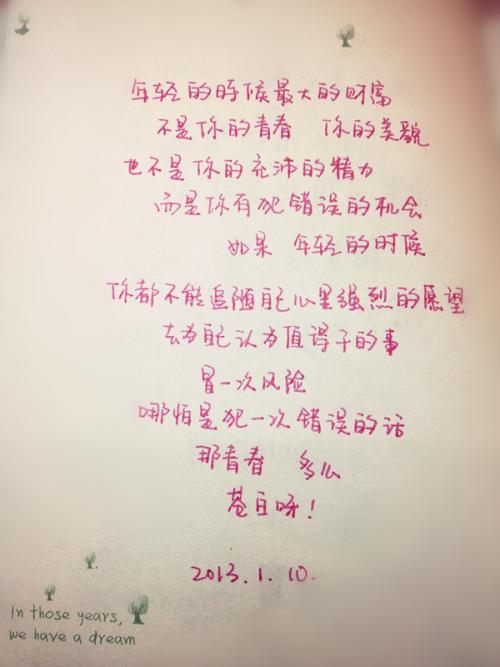 年轻的时候最大的财富
不是你的青春 你的美貌
也不是你的充沛的精力
而是你有犯错误的机会
如果 年轻的时候
你都不能追随自己心里强烈的愿望
去为自己认为值得干的事
冒一次风险
哪怕是犯一次错误的话
那青春 多么
苍白呀!
2013.1.10.
In those years,
we have a dream